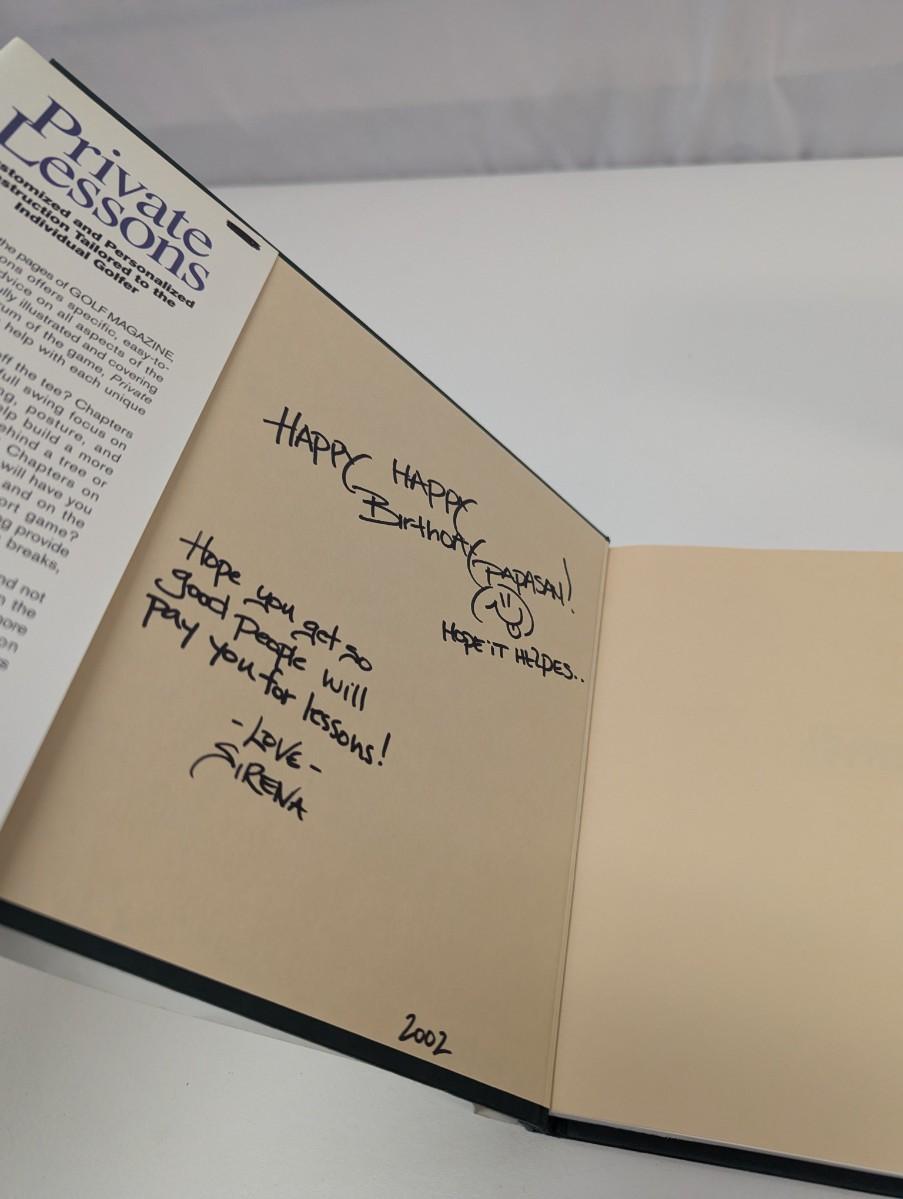 Private
Lessons
stomized and Personalized
struction Tailored to the
Individual Golfer
he pages of GOLF MAGAZINE,
ons offers specific, easy-to-
dvice on all aspects of the
ully illustrated and covering
rum of the game, Private
help with each unique
off the tee? Chapters
full swing focus on
ng, posture, and
elp build a more
ehind a tree or
Chapters on
will have you
and on the
ort game?
g provide
breaks,
nd not
n the
more
on
s
HAPPY HAPPY
Birthday
PAPASAN!
HOPE IT HELPES..
Hope you get so
good People will
pay you for lessons!
-LOVE-
SIRENA
2002